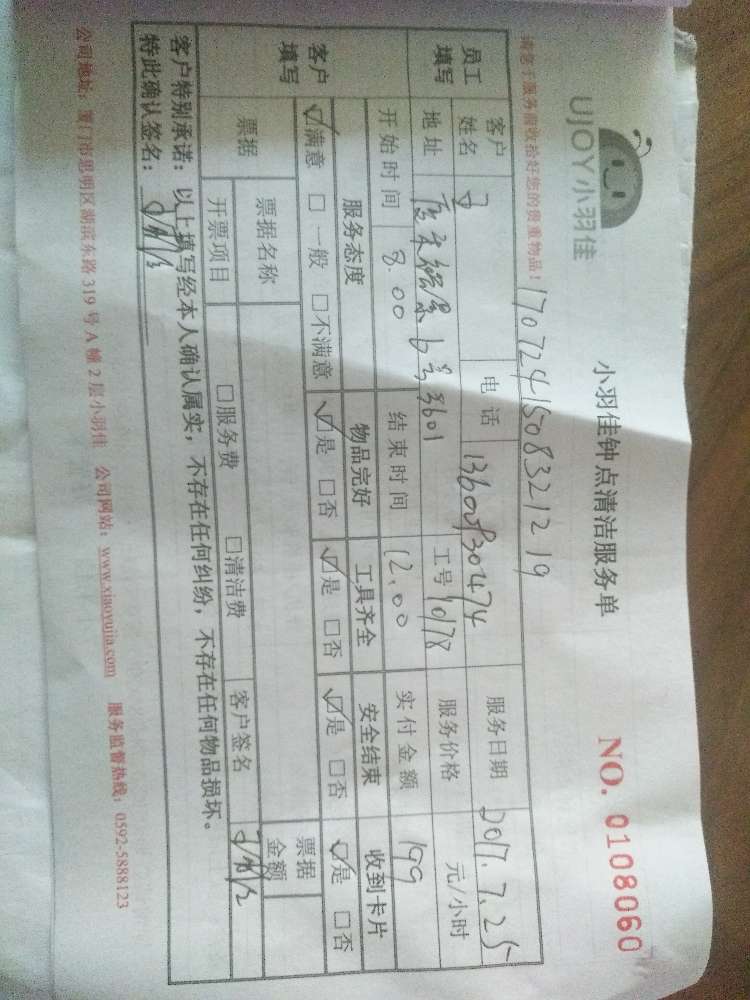 UJOY小羽佳
小羽佳钟点清洁服务单
NO. 0108060
请您于服务前收拾好您的贵重物品！
17072415083212 19
员工填写
客户姓名 电话 服务日期 2017.7.25
地址 6号3601 工号 服务价格 元/小时
开始时间 8.00 结束时间 12.00 实付金额 199
客户填写
服务态度 物品完好 工具齐全 安全结束 收到卡片
☑满意 □一般 □不满意 ☑是 □否 ☑是 □否 ☑是 □否 ☑是 □否
票据 票据名称 票据金额
开票项目 □服务费 □清洁费 客户签名
客户特别承诺：以上填写经本人确认属实，不存在任何纠纷，不存在任何物品损坏。
特此确认签名：
公司地址：厦门市思明区湖滨东路 319 号 A 幢 2 层小羽佳 公司网站：www.xiaoyujia.com 服务监督热线：0592-5888123